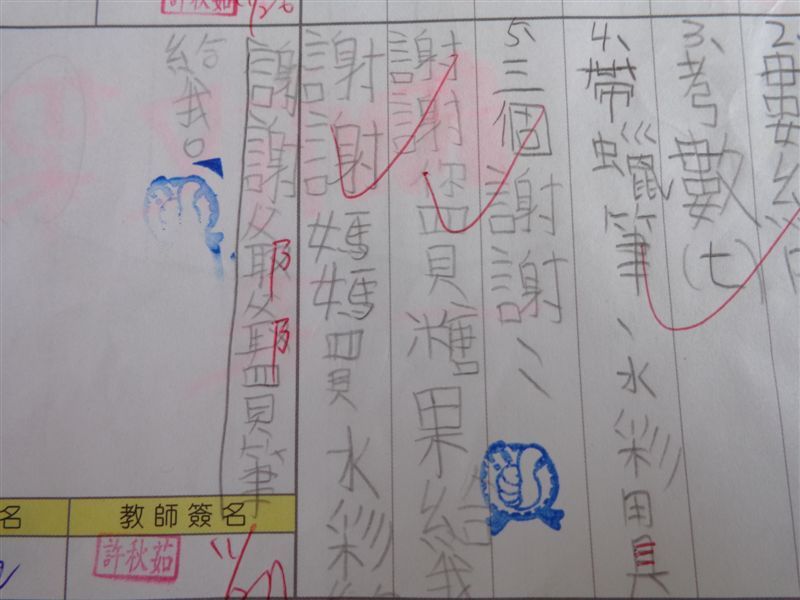 許秋茹
2、
3、考數(七)
4、帶蠟筆、水彩用具
5、三個謝謝、、
謝謝您買糖果給我
謝謝媽媽買水彩
謝謝爺爺買筆
給我。
教師簽名
名
許秋茹
11/27